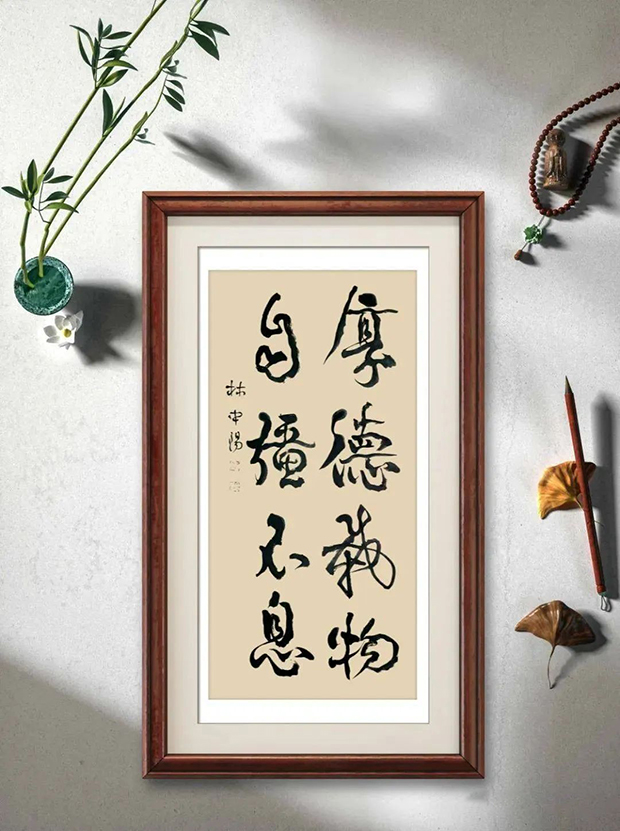 厚德載物
自彊不息
林中陽